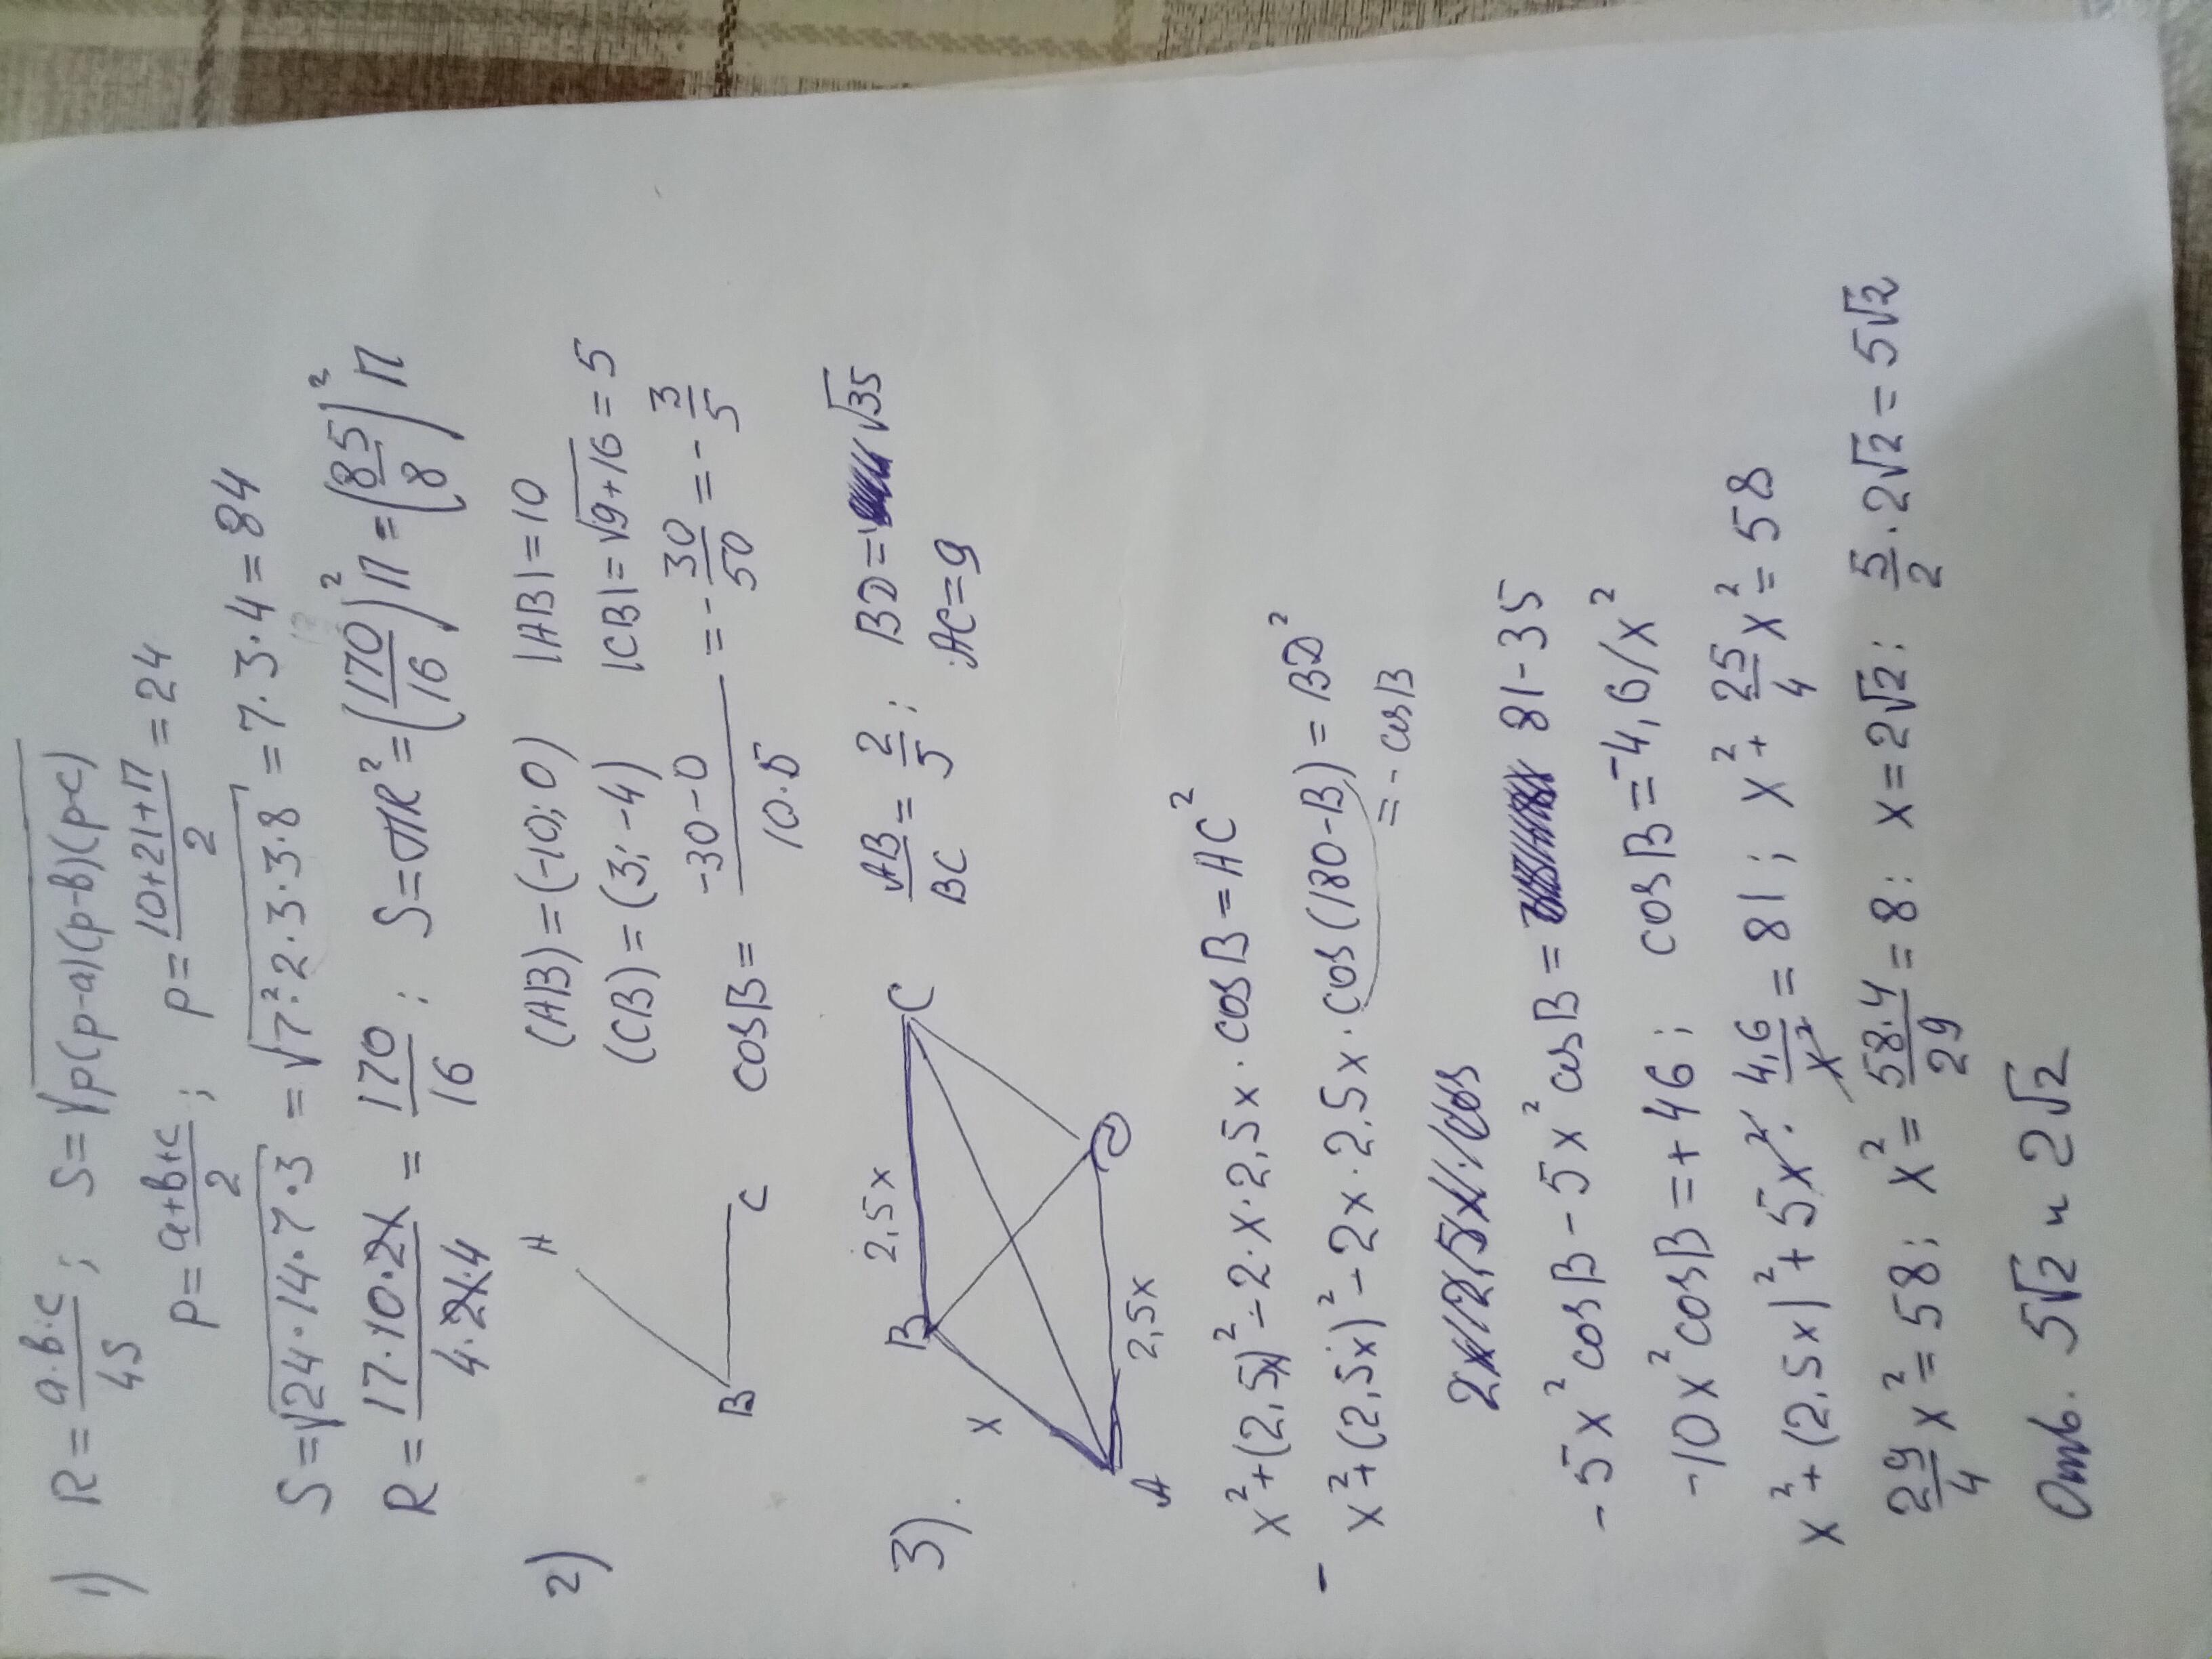 1) R = a·b·c/4S ; S = √p(p-a)(p-b)(p-c)
p = a+b+c/2 ; p = 10+21+17/2 = 24
S = √24·14·7·3 = √7²·2·3·3·8 = 7·3·4 = 84
R = 17·10·21/4·21·4 = 170/16 ; S = πR² = (170/16)²π = (85/8)²π
2) A
B C
(AB) = (-10; 0) |AB| = 10
(CB) = (3; -4) |CB| = √9+16 = 5
cosB = -30-0/10·5 = -30/50 = -3/5
3). B 2,5x C
x
A 2,5x D
AB/BC = 2/5 ; BD = √35
AC = 9
x² + (2,5x)² - 2·x·2,5x·cosB = AC²
- x² + (2,5x)² - 2x·2,5x·cos(180-B) = BD²
= - cosB
-5x² cosB - 5x² cosB = 81-35
-10x² cosB = +46 ; cosB = -4,6/x²
x² + (2,5x)² + 5x²·4,6/x² = 81 ; x² + 25/4 x² = 58
29/4 x² = 58 ; x² = 58·4/29 = 8 ; x = 2√2 ; 5/2·2√2 = 5√2
Отв. 5√2 и 2√2